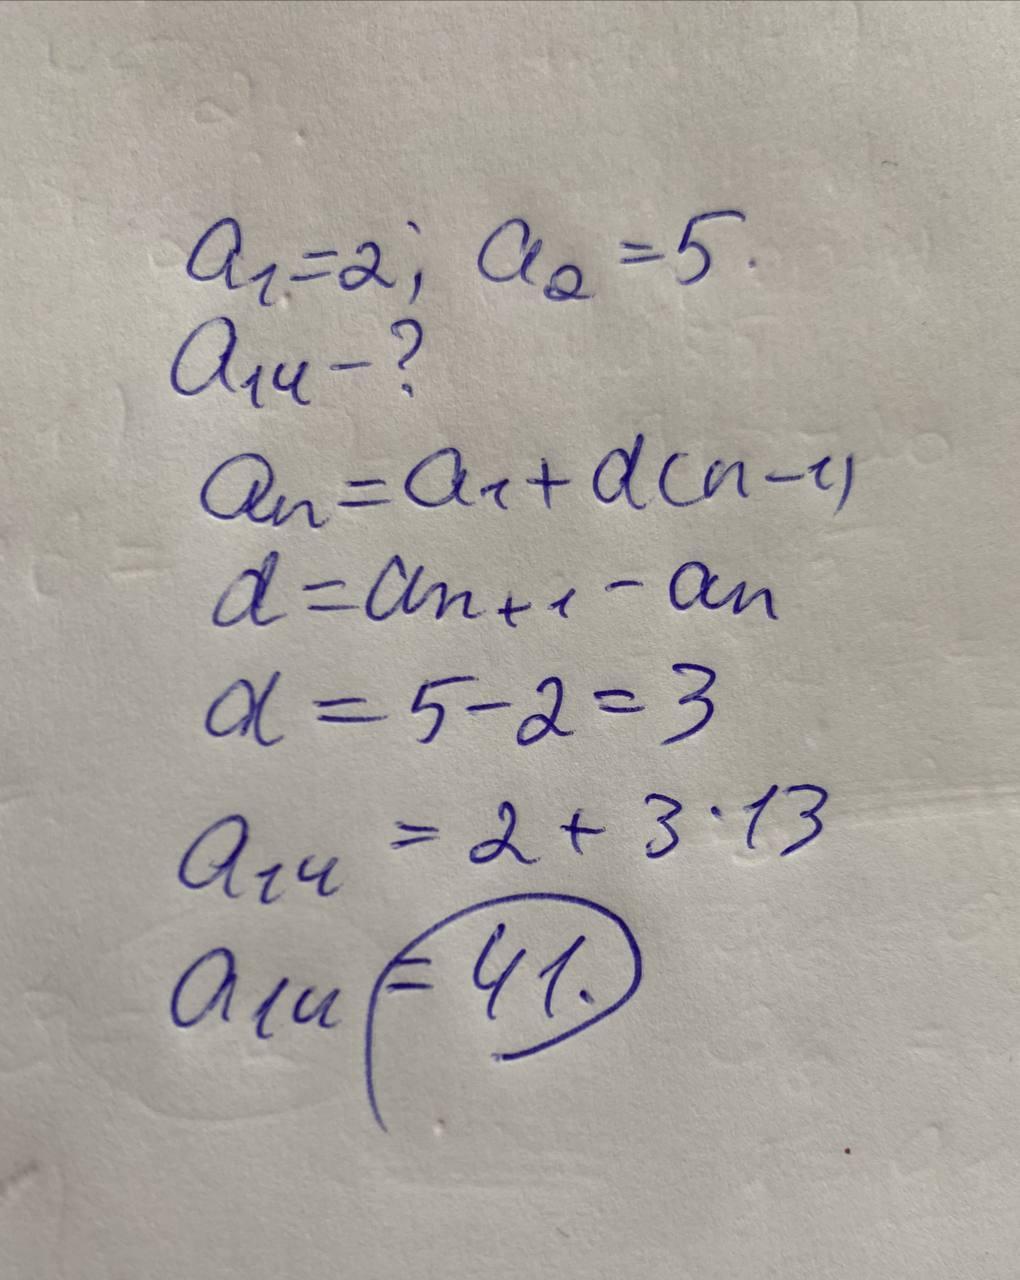 a₁=2; a₂=5.
a₁₄-?
aₙ=a₁+d(n-1)
d=aₙ₊₁-aₙ
d=5-2=3
a₁₄=2+3·13
a₁₄=41.